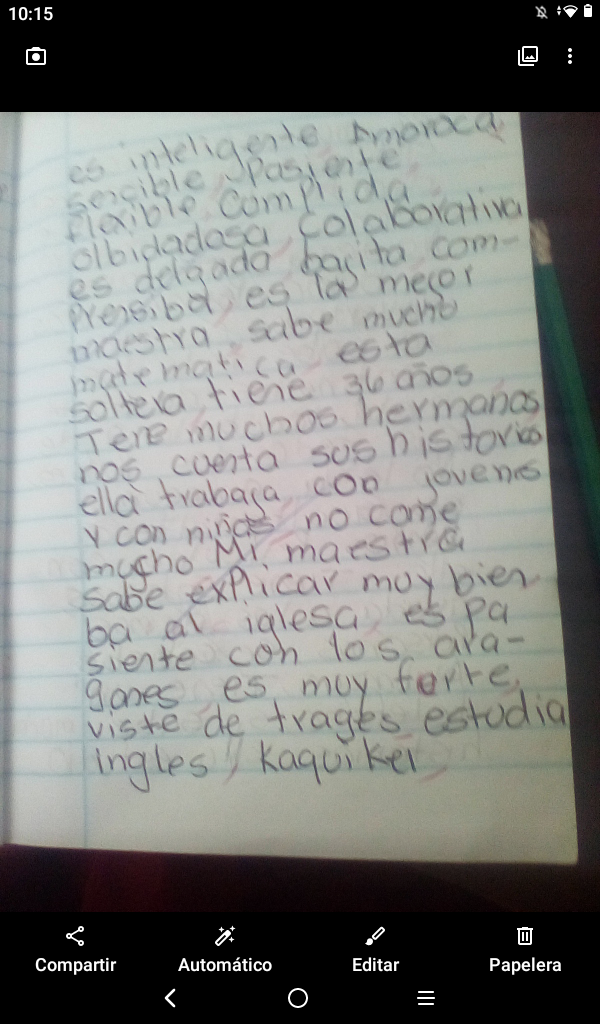 10:15
es inteligente Amoroca
sencible, pasiente
flexible complida
olbidadosa, colaborativa
es delgada bagita com-
prensiba, es la megor
maestra. sabe mucho
matematica, esta
soltera, tiene 36 años
Tene muchos hermanos
nos cuenta sus historias
ella trabaga, con jovenes
y con niñas no come
mucho Mi maestra
sabe explicar muy bien
ba al iglesa, es pa
siente con los ara-
ganes es muy forte,
viste de trages estudia
ingles, kaquikel,
Compartir
Automático
Editar
Papelera